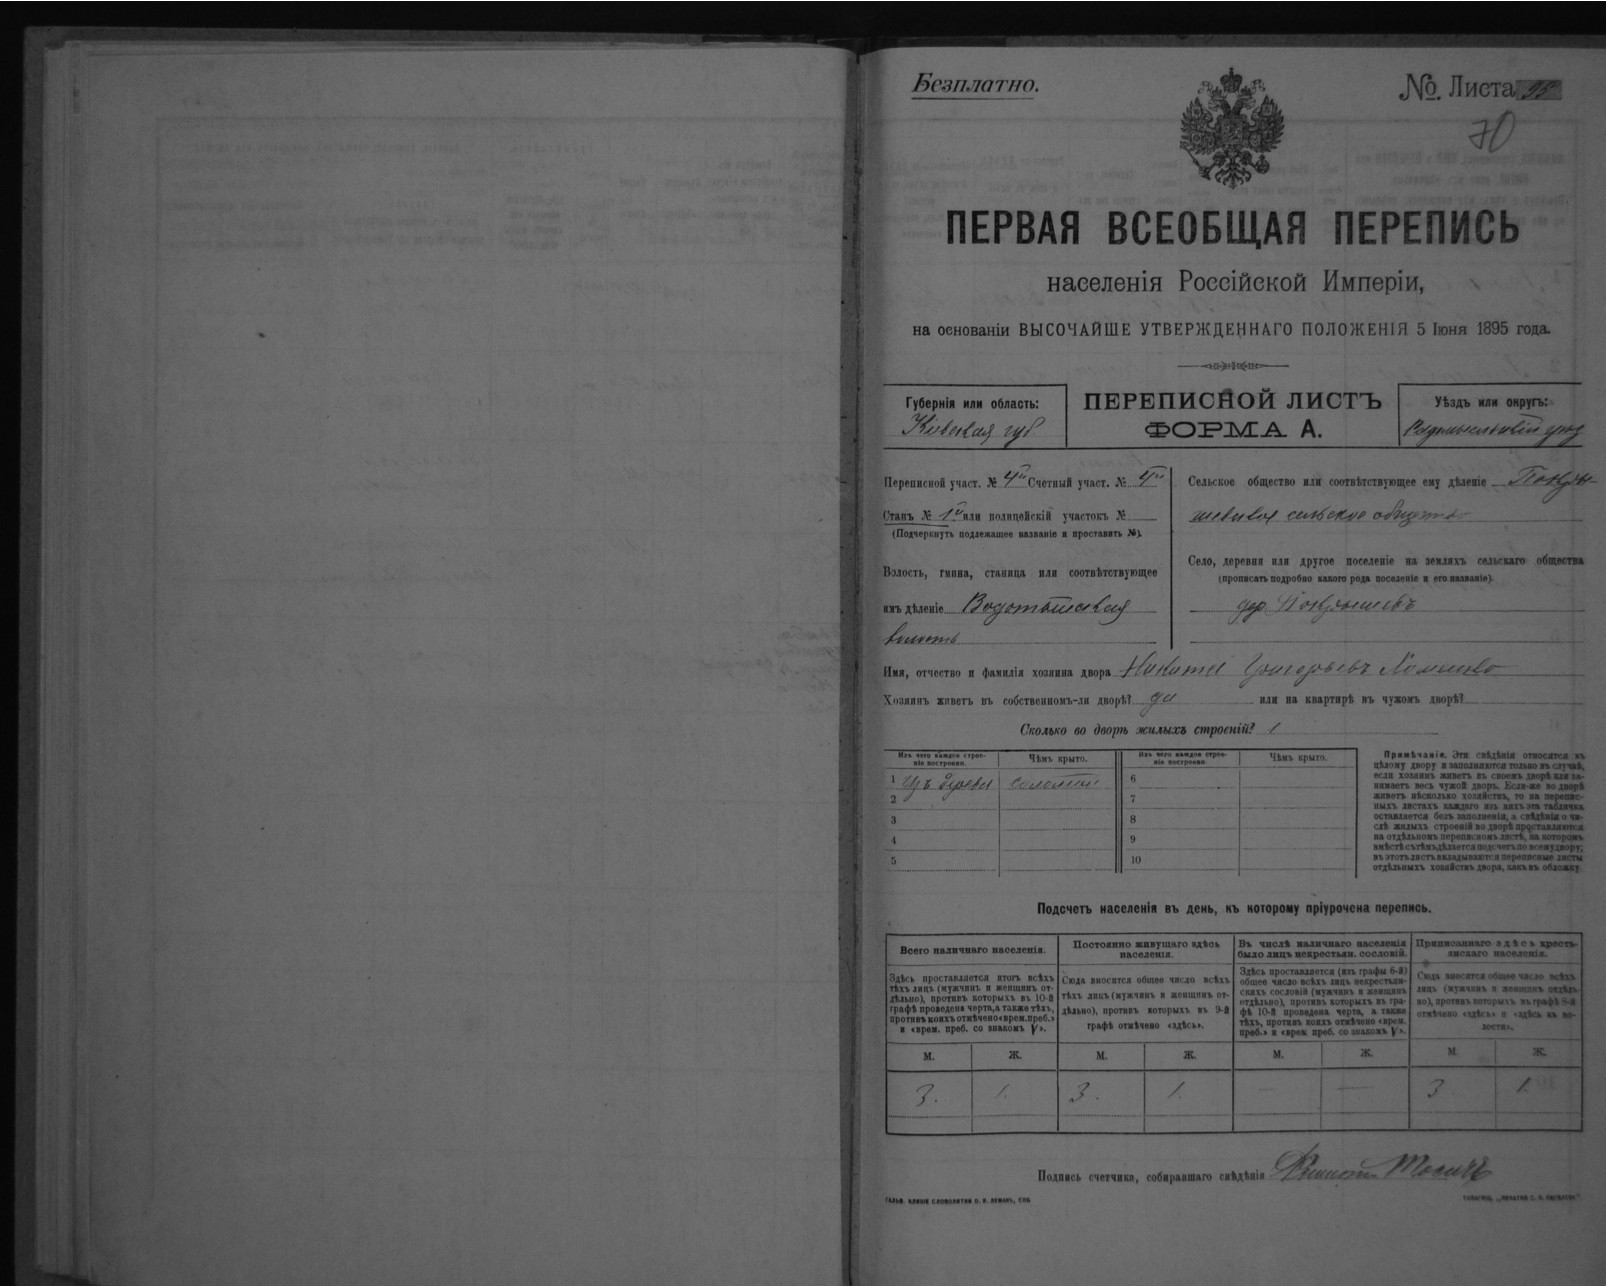 Безплатно.
№. Листа 95
70
ПЕРВАЯ ВСЕОБЩАЯ ПЕРЕПИСЬ
населенія Россійской Имперіи,
на основаніи ВЫСОЧАЙШЕ УТВЕРЖДЕННАГО ПОЛОЖЕНІЯ 5 Іюня 1895 года.
Губернія или область:
Кіевская губ
ПЕРЕПИСНОЙ ЛИСТЪ
ФОРМА А.
Уѣздъ или округъ:
Радомысльскій уѣзд
Переписной участ. № 4й Счетный участ. № 4й
Станъ № 1й или полицейскій участокъ №
(Подчеркнуть подлежащее названіе и проставить №).
Волость, гмина, станица или соотвѣтствующее
имъ дѣленіе Водотыйская
волость
Сельское общество или соотвѣтствующее ему дѣленіе
сельское общество
Село, деревня или другое поселеніе на земляхъ сельскаго общества
(прописать подробно какого рода поселеніе и его названіе).
дер.
Имя, отчество и фамилія хозяина двора Никита Григорьевъ
Хозяинъ живетъ въ собственномъ-ли дворѣ? да или на квартирѣ въ чужомъ дворѣ?
Сколько во дворѣ жилыхъ строеній? 1
Изъ чего каждое строе-
ніе построено.
Чѣмъ крыто.
Изъ чего каждое строе-
ніе построено
Чѣмъ крыто.
1 Изъ дерева соломой
2
3
4
5
6
7
8
9
10
Примѣчаніе. Эти свѣдѣнія относятся къ
цѣлому двору и заполняются только въ случаѣ,
если хозяинъ живетъ въ своемъ дворѣ или за-
нимаетъ весь чужой дворъ. Если-же во дворѣ
живетъ нѣсколько хозяйствъ, то на перепис-
ныхъ листахъ каждаго изъ нихъ эта табличка
оставляется безъ заполненія, а свѣдѣнія о чи-
слѣ жилыхъ строеній во дворѣ проставляются
на отдѣльномъ переписномъ листѣ, на которомъ
вмѣстѣ съ тѣмъ дѣлается подсчетъ по всему двору;
въ этотъ листъ вкладываются переписные листы
отдѣльныхъ хозяйствъ двора, какъ въ обложку.
Подсчетъ населенія въ день, къ которому пріурочена перепись.
Всего наличнаго населенія.
Здѣсь проставляется итогъ всѣхъ
тѣхъ лицъ (мужчинъ и женщинъ от-
дѣльно), противъ которыхъ въ 10-й
графѣ проведена черта, а также тѣхъ,
противъ коихъ отмѣчено «врем. преб.»
и «врем. преб. со знакомъ V».
Постоянно живущаго здѣсь
населенія.
Сюда вносится общее число всѣхъ
тѣхъ лицъ (мужчинъ и женщинъ от-
дѣльно), противъ которыхъ въ 9-й
графѣ отмѣчено «здѣсь».
Въ числѣ наличнаго населенія
было лицъ некрестьян. сословій.
Здѣсь проставляется (изъ графы 6-й)
общее число всѣхъ лицъ некрестьян-
скихъ сословій (мужчинъ и женщинъ
отдѣльно), противъ которыхъ въ гра-
фѣ 10-й проведена черта, а также
тѣхъ, противъ коихъ отмѣчено «врем.
преб.» и «врем. преб. со знакомъ V».
Приписаннаго здѣсь кресть-
янскаго населенія.
Сюда вносится общее число всѣхъ
лицъ (мужчинъ и женщинъ отдѣль-
но), противъ которыхъ въ графѣ 8-й
отмѣчено «здѣсь» и «здѣсь въ во-
лости».
М. Ж. М. Ж. М. Ж. М. Ж.
3. 1. 3. 1. — — 3 1.
Подпись счетчика, собиравшаго свѣдѣнія
ГАЛЬВ. КЛИШЕ СЛОВОЛИТНИ О. И. ЛЕМАНЪ, СПБ